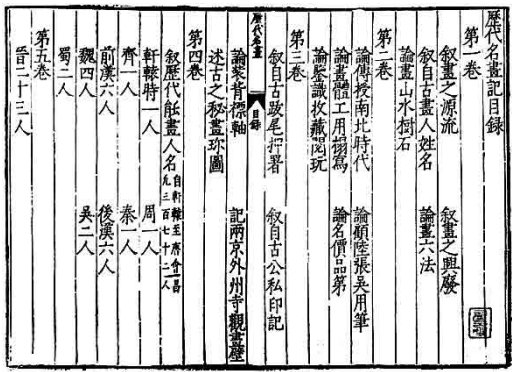 歷代名畫記目錄
第一卷
敘畫之源流 敘畫之興廢
敘自古畫人姓名 論畫六法
論畫山水樹石
第二卷
論傳授南北時代 論顧陸張吳用筆
論畫體工用搨寫 論名價品第
論鑒識收藏閱玩
第三卷
敘自古跋尾押署 敘自古公私印記
歷代名畫 目錄
論裝背褾軸 記兩京外州寺觀畫壁
述古之秘畫珍圖
第四卷
敘歷代能畫人名 自軒轅至唐會昌凡三百七十二人
軒轅時一人 周一人
齊一人 秦一人
前漢六人 後漢六人
魏四人 吳二人
蜀二人
第五卷
晉二十三人